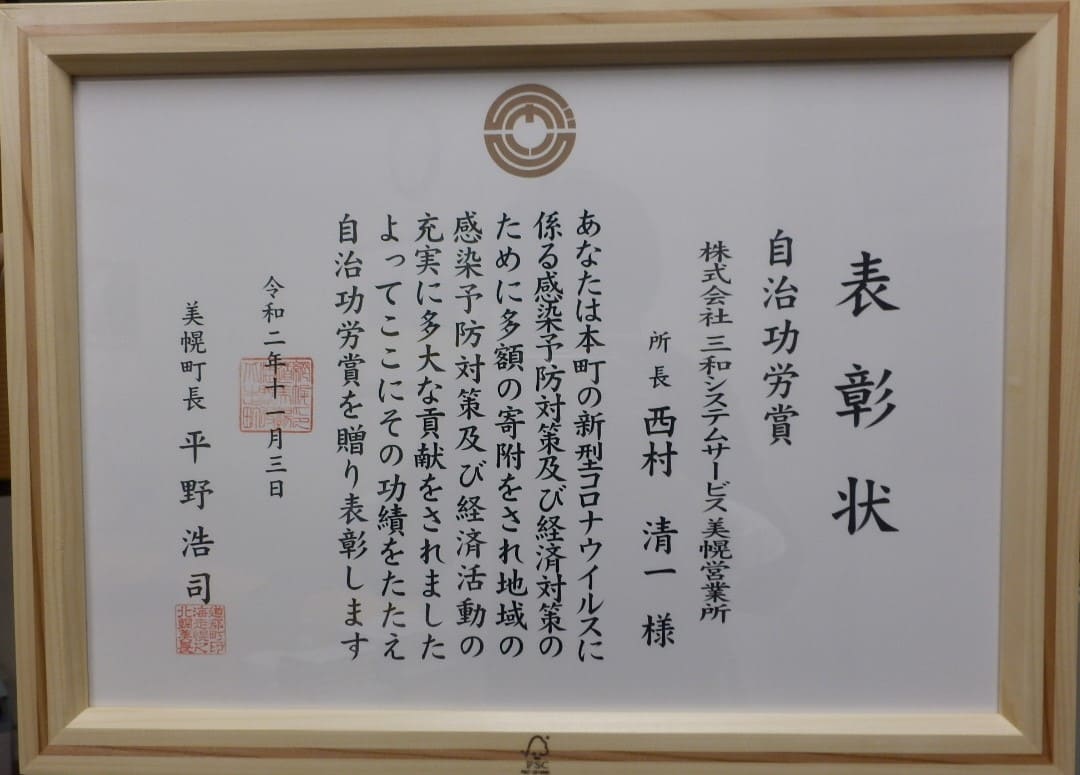 表彰状
自治功労賞
株式会社 三和システムサービス 美幌営業所
所長 西村 清一 様
あなたは本町の新型コロナウイルスに
係る感染予防対策及び経済対策の
ために多額の寄附をされ地域の
感染予防対策及び経済活動の
充実に多大な貢献をされました
よってここにその功績をたたえ
自治功労賞を贈り表彰します
令和二年十一月三日
美幌町長 平野浩司
FSC